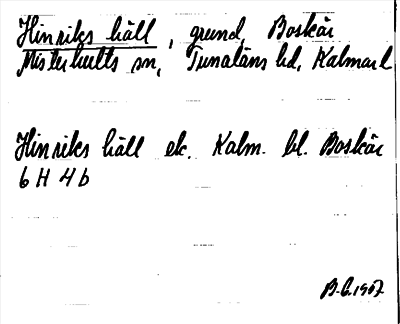 Hinriks häll, grund, Boskär
Misterhults sn, Tunaläns hd, Kalmar l
Hinriks häll ek. Kalm. bl. Boskär
6 H 4 b
B-G. 1967